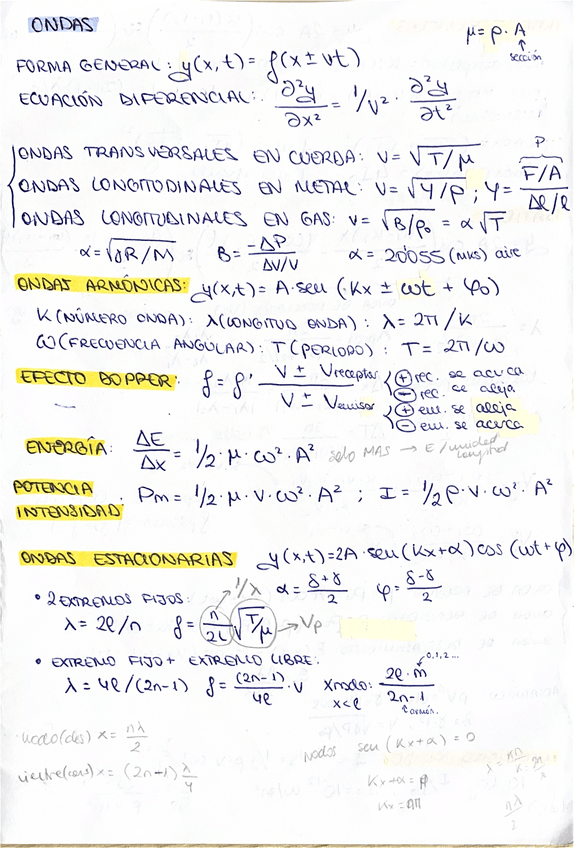 ONDAS
μ = ρ · A
sección
FORMA GENERAL: y(x,t) = f(x ± vt)
ECUACIÓN DIFERENCIAL: ∂²y/∂x² = 1/v² · ∂²y/∂t²
ONDAS TRANSVERSALES EN CUERDA: V = √(T/μ)
ONDAS LONGITUDINALES EN METAL: V = √(Y/ρ) ; Y = (F/A)/(Δl/l)
P
ONDAS LONGITUDINALES EN GAS: V = √(B/ρ₀) = α√T
α = √(γR/M) B = -ΔP/(ΔV/V) α = 20'055 (MKS) aire
ONDAS ARMÓNICAS: y(x,t) = A · sen (Kx ± ωt + φ₀)
K (NÚMERO ONDA): λ (LONGITUD ONDA): λ = 2π/K
ω (FRECUENCIA ANGULAR): T (PERIODO): T = 2π/ω
EFECTO DOPPLER: f = f' (V ± Vreceptor)/(V ± Vemisor)
⊕ rec. se acerca
⊖ rec. se aleja
⊕ em. se aleja
⊖ em. se acerca
ENERGÍA: ΔE/Δx = 1/2 · μ · ω² · A² solo MAS → E/unidad longitud
POTENCIA
INTENSIDAD: Pm = 1/2 · μ · V · ω² · A² ; I = 1/2 ρ · V · ω² · A²
ONDAS ESTACIONARIAS y(x,t) = 2A · sen (Kx + α) cos (ωt + φ)
α = (δ+γ)/2 φ = (δ-γ)/2
• 2 EXTREMOS FIJOS: 1/λ
λ = 2l/n f = n/2L √(T/μ) → Vp
• EXTREMO FIJO + EXTREMO LIBRE:
λ = 4l/(2n-1) f = (2n-1)/4l · V Xnodo: x<l (2l · m)/(2n-1)
0,1,2...
armón.
nodo(des) x = nλ/2
vientre(cons) x = (2n+1) λ/4
nodos sen (Kx+α) = 0
Kx = nπ
nλ/2